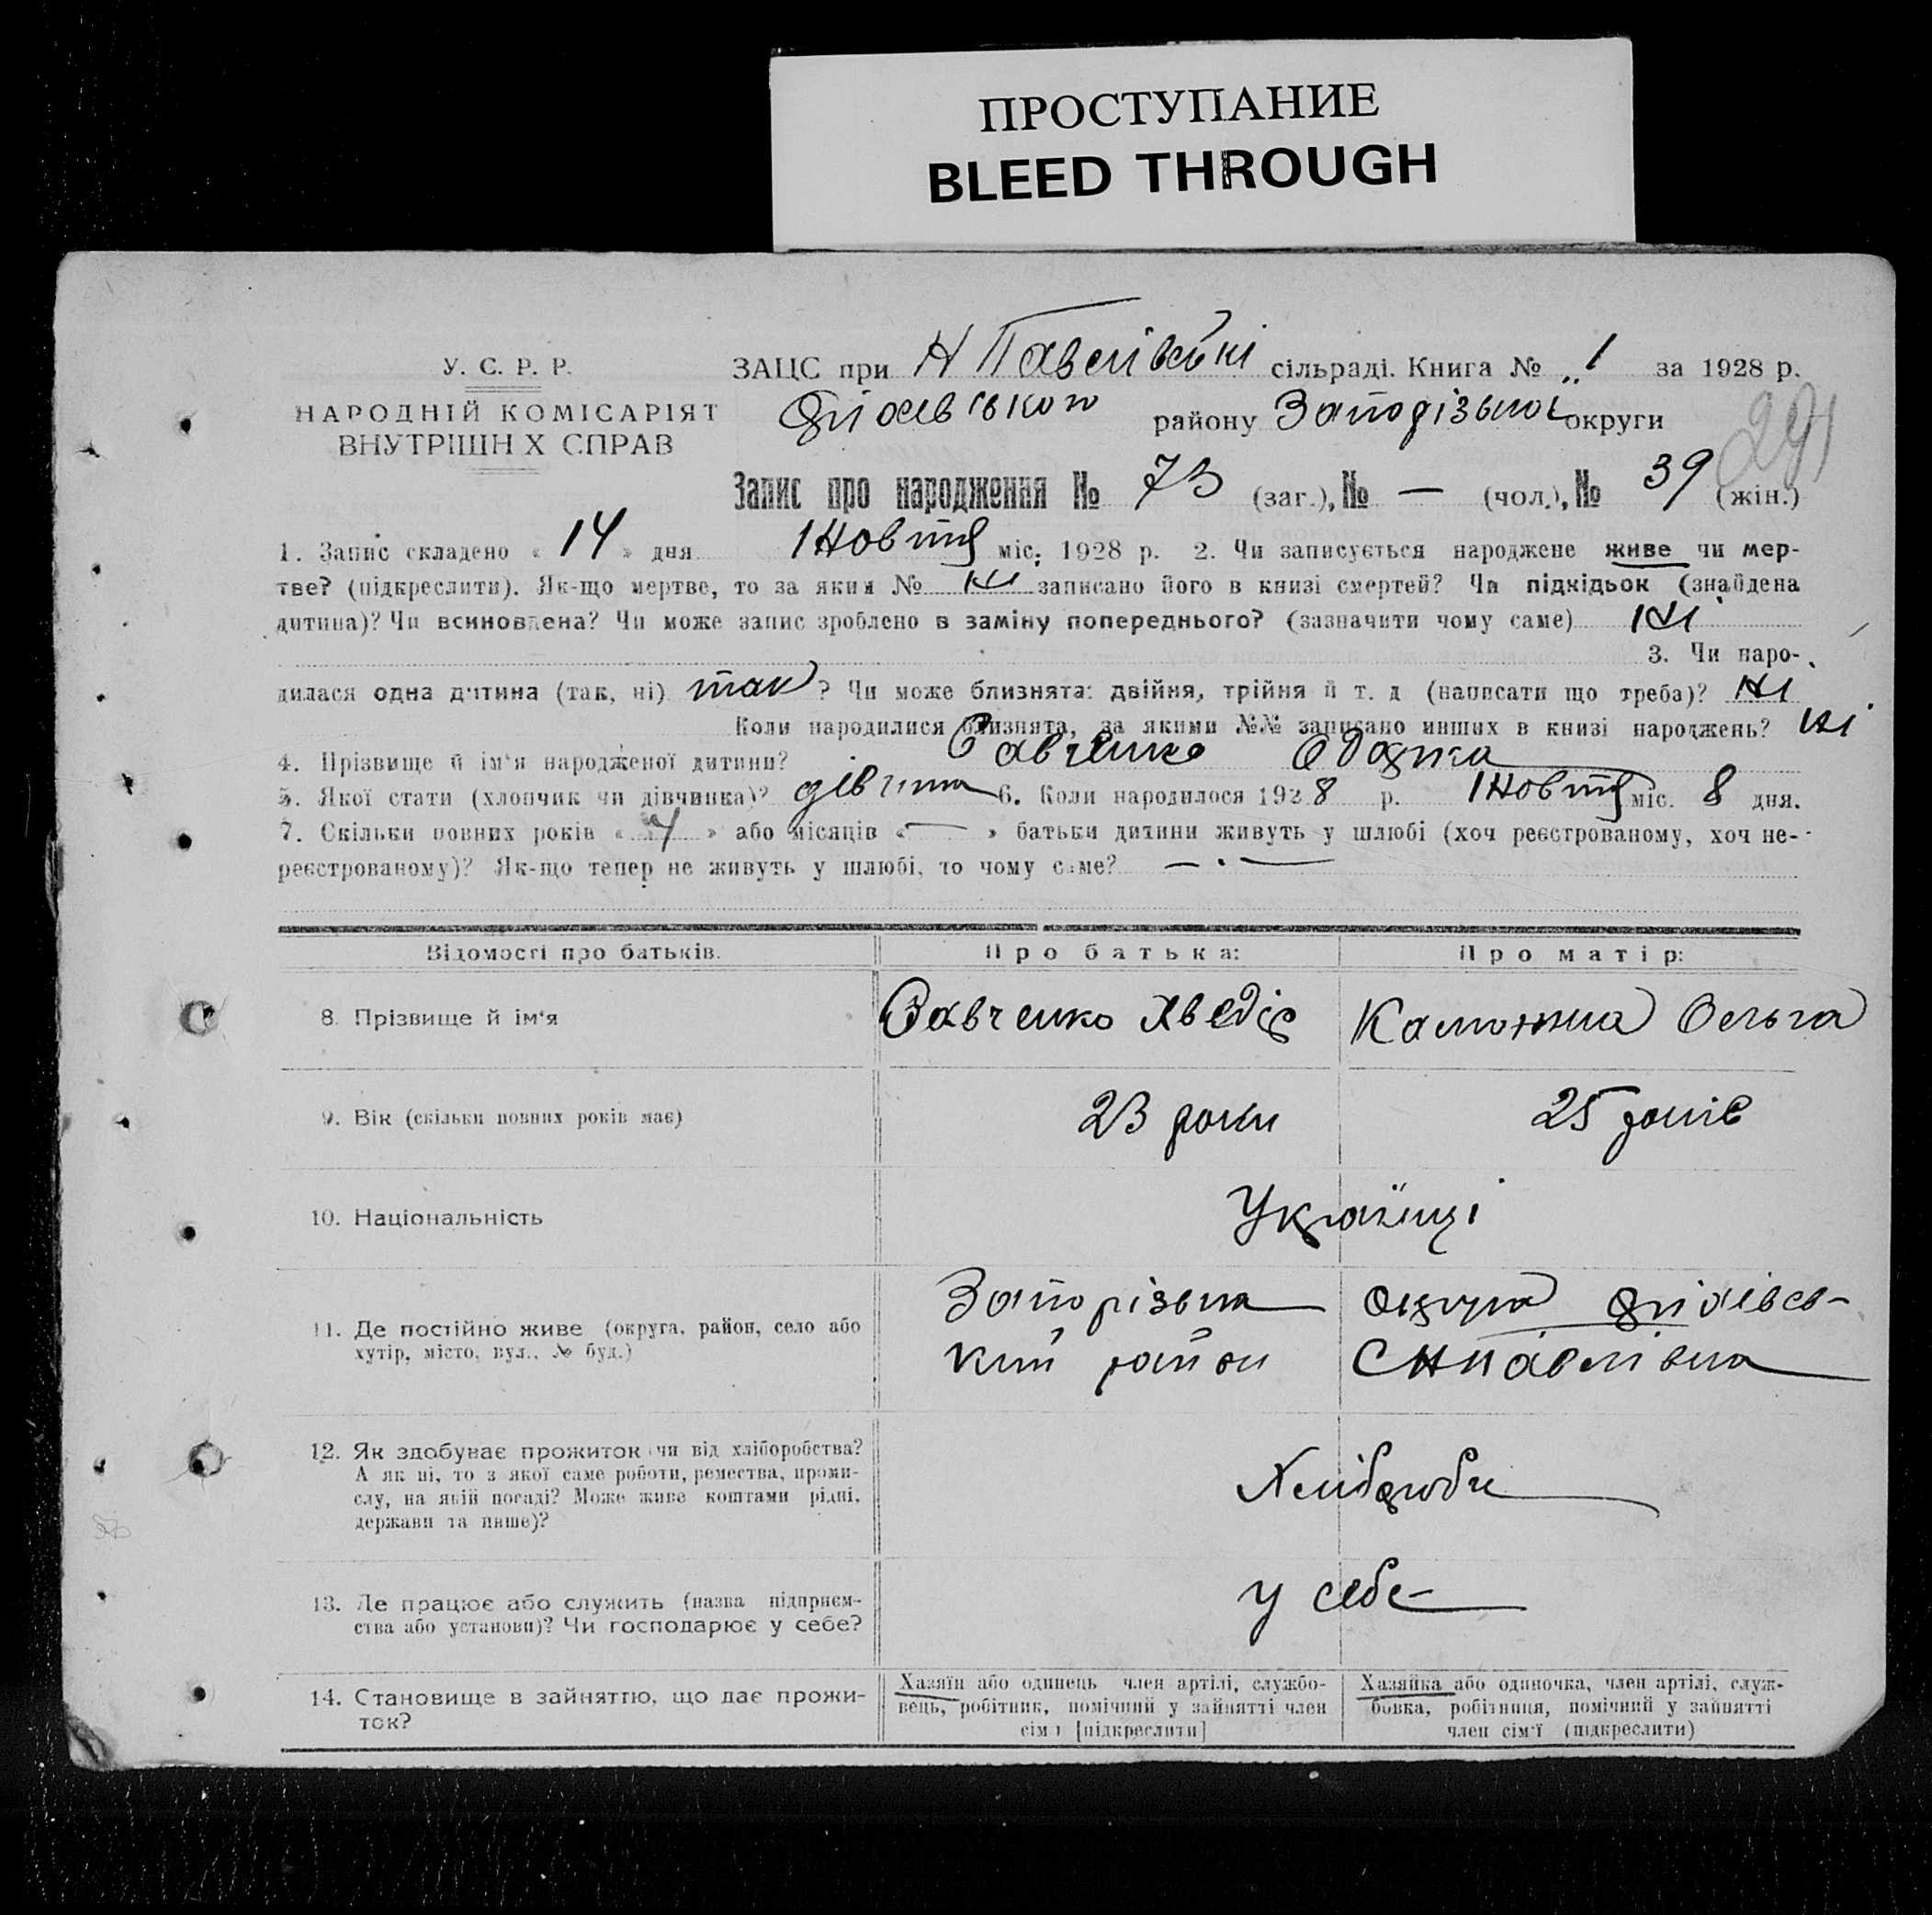 ПРОСТУПАНИЕ
BLEED THROUGH
У. С. Р. Р.
НАРОДНІЙ КОМІСАРІЯТ
ВНУТРІШН Х СПРАВ
ЗАЦС при Н Павлівські сільраді. Книга № „1 за 1928 р.
району Запорізької округи
291
Запис про народження № 73 (заг.), № — (чол.), № 39 (жін.)
1. Запис складено « 14 » дня Жовтня міс. 1928 р. 2. Чи записується народжене живе чи мер-
тве? (підкреслити). Як-що мертве, то за яким № ні записано його в книзі смертей? Чи підкідьок (знайдена
дитина)? Чи всиновлена? Чи може запис зроблено в заміну попереднього? (зазначити чому саме) ні
3. Чи наро-
дилася одна дитина (так, ні) так ? Чи може близнята: двійня, трійня й т. д (написати що треба)? ні
Коли народилися близнята, за якими №№ записано инших в книзі народжень? ні
4. Прізвище й ім‘я народженої дитини? Савченко Одарка
5. Якої стати (хлопчик чи дівчинка)? дівчина 6. Коли народилося 1928 р. Жовтня міс. 8 дня.
7. Скільки повних років « 4 » або місяців « — » батьки дитини живуть у шлюбі (хоч реєстрованому, хоч не-
реєстрованому)? Як-що тепер не живуть у шлюбі, то чому саме? — . —
Відомості про батьків. Про батька: Про матір:
8. Прізвище й ім‘я Савченко Хведір Ольга
9. Вік (скільки повних років має) 23 роки 25 років
10. Національність Українці
11. Де постійно живе (округа, район, село або
хутір, місто, вул., № буд.)
Запорізька округа
кий район С Н Павлівка
12. Як здобуває прожиток чи від хліборобства?
А як ні, то з якої саме роботи, ремества, проми-
слу, на якій посаді? Може живе коштами рідні,
держави та инше)?
Хлібороби
13. Де працює або служить (назва підприєм-
ства або установи)? Чи господарює у себе?
у себе
14. Становище в зайняттю, що дає прожи-
ток?
Хазяїн або одинець член артілі, службо-
вець, робітник, помічний у зайнятті член
сім ї [підкреслити]
Хазяйка або одиночка, член артілі, служ-
бовка, робітниця, помічний у зайнятті
член сім‘ї (підкреслити)